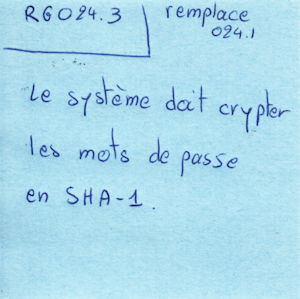 RG024.3
remplace
024.1
Le système doit crypter
les mots de passe
en SHA-1.